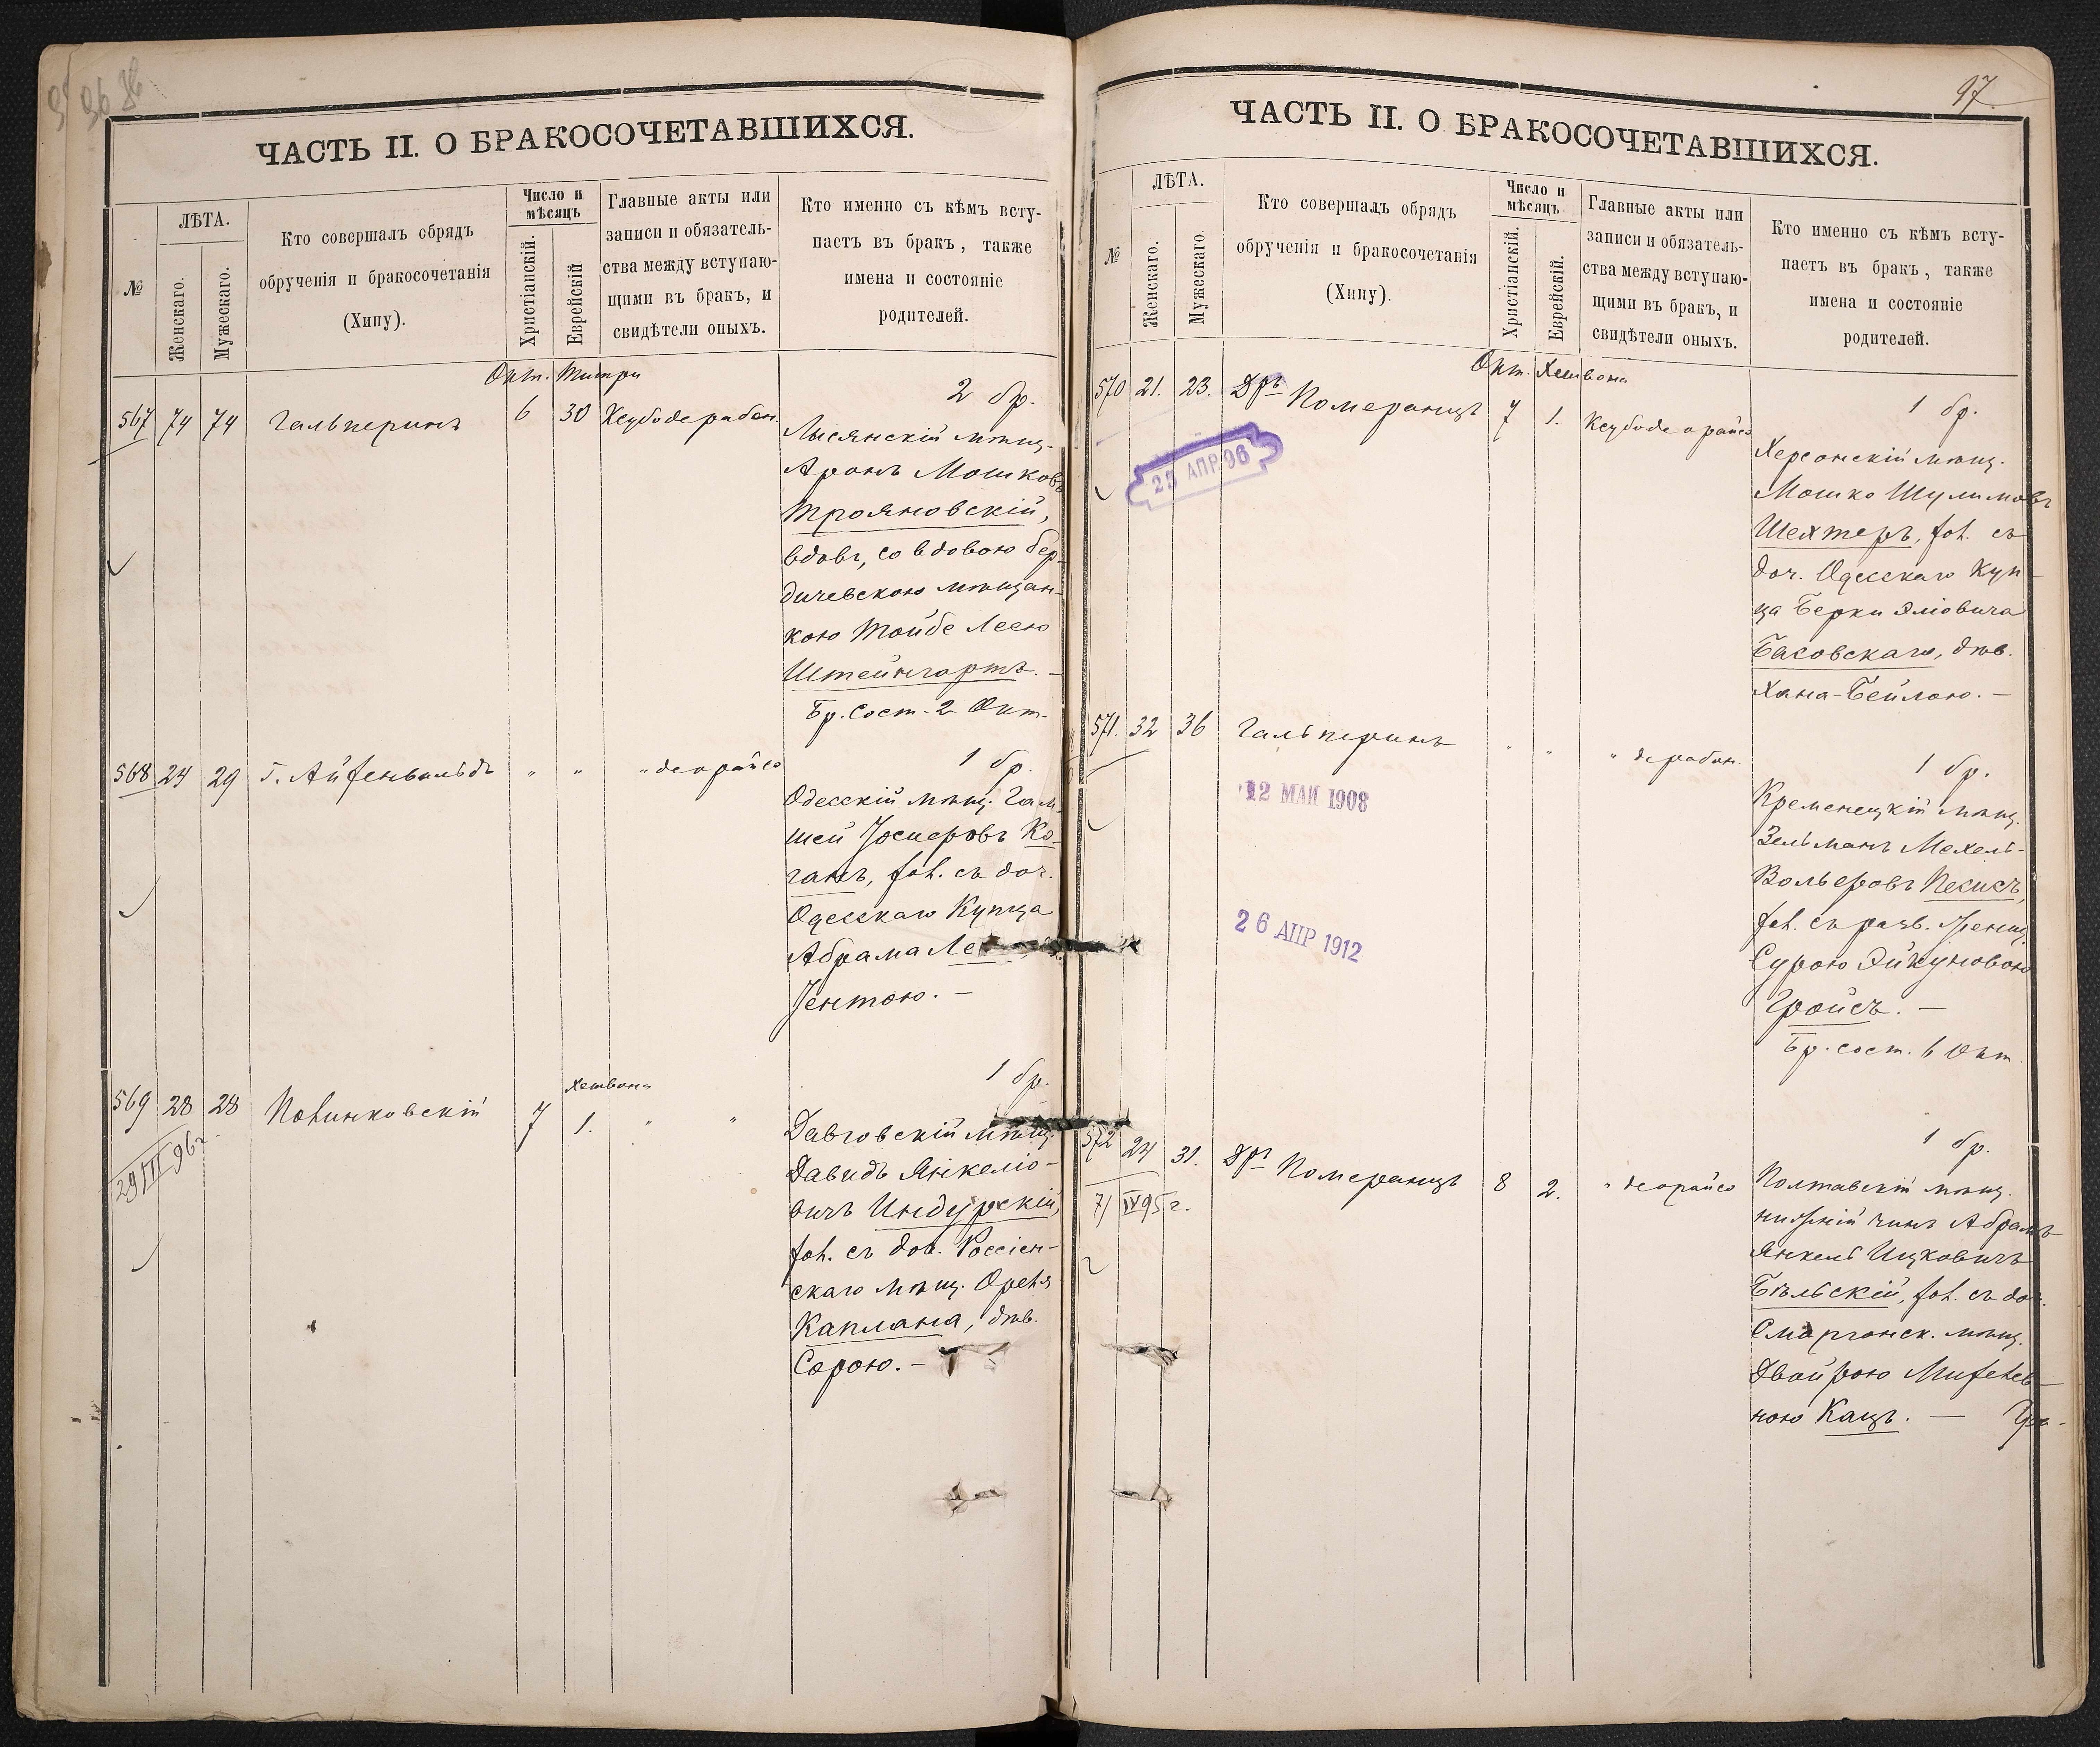 ЧАСТЬ II. О БРАКОСОЧЕТАВШИХСЯ.
№
ЛѢТА.
Женскаго.
Мужескаго.
Кто совершалъ обрядъ
обрученія и бракосочетанія
(Хипу).
Число и
мѣсяцъ
Христіанскій.
Еврейскій
Главные акты или
записи и обязатель-
ства между вступаю-
щими въ бракъ, и
свидѣтели оныхъ.
Кто именно съ кѣмъ всту-
паетъ въ бракъ, также
имена и состояніе
родителей.
Окт. Тишри
567 74 74 Гальперинъ 6 30 Ксубодерабон.
2 бр.
Лысянскій мѣщ.
Аронъ Мошковъ
Трояновскій,
вдовъ, со вдовою бер-
дичевскою мѣщан-
кою Тойбе Леею
Штейнгартъ. —
Бр. сост. 2 Окт.
568 24 29 Г. Айзенвальдъ " " " деорайсо
1 бр.
Одесскій мѣщ. Гам-
шей Іосифовъ Ко-
ганъ, хол. съ доч.
Одесскаго Купца
Абрама
Іентою. —
569 28 28 7 Хешвона 1. " "
29/III 96 г.
1 бр.
мѣщ.
Давидъ Янкеліо-
вичъ Индурскій,
хол. съ доч. Россіен-
скаго мѣщ.
Каплана, дѣв.
Сорою. —
97
ЧАСТЬ II. О БРАКОСОЧЕТАВШИХСЯ.
№
ЛѢТА.
Женскаго.
Мужескаго.
Кто совершалъ обрядъ
обрученія и бракосочетанія
(Хипу).
Число и
мѣсяцъ
Христіанскій.
Еврейскій.
Главные акты или
записи и обязатель-
ства между вступаю-
щими въ бракъ, и
свидѣтели оныхъ.
Кто именно съ кѣмъ всту-
паетъ въ бракъ, также
имена и состояніе
родителей.
Окт. Хешвона
570 21. 23. Дръ Померанцъ 7 1. Ксубоде орайсо
25 АПР 96
1 бр.
Херсонскій мѣщ.
Мошко Шулимовъ
Шехтеръ, хол. съ
доч. Одесскаго Куп-
ца Берки Эліовича
Басовскаго, дѣв.
Хана-Бейлою. —
571. 32 36 Гальперинъ " " " дерабон.
12 МАЙ 1908
26 АПР 1912
1 бр.
Кременецкій мѣщ.
Зельманъ Мехель-
Вольфовъ Песисъ,
хол. съ разв. женщ.
Сурою
Гройсъ. —
Бр. сост. 6 Окт.
572 24 31. Дръ Померанцъ 8 2. " деорайсо
7/IV 95 г.
1 бр.
Полтавскій мѣщ.
нижній чинъ Абрамъ
Янкель Ицковичъ
Бѣльскій, хол. съ доч.
Сморгонск. мѣщ.
Двойрою
ною Кацъ. —